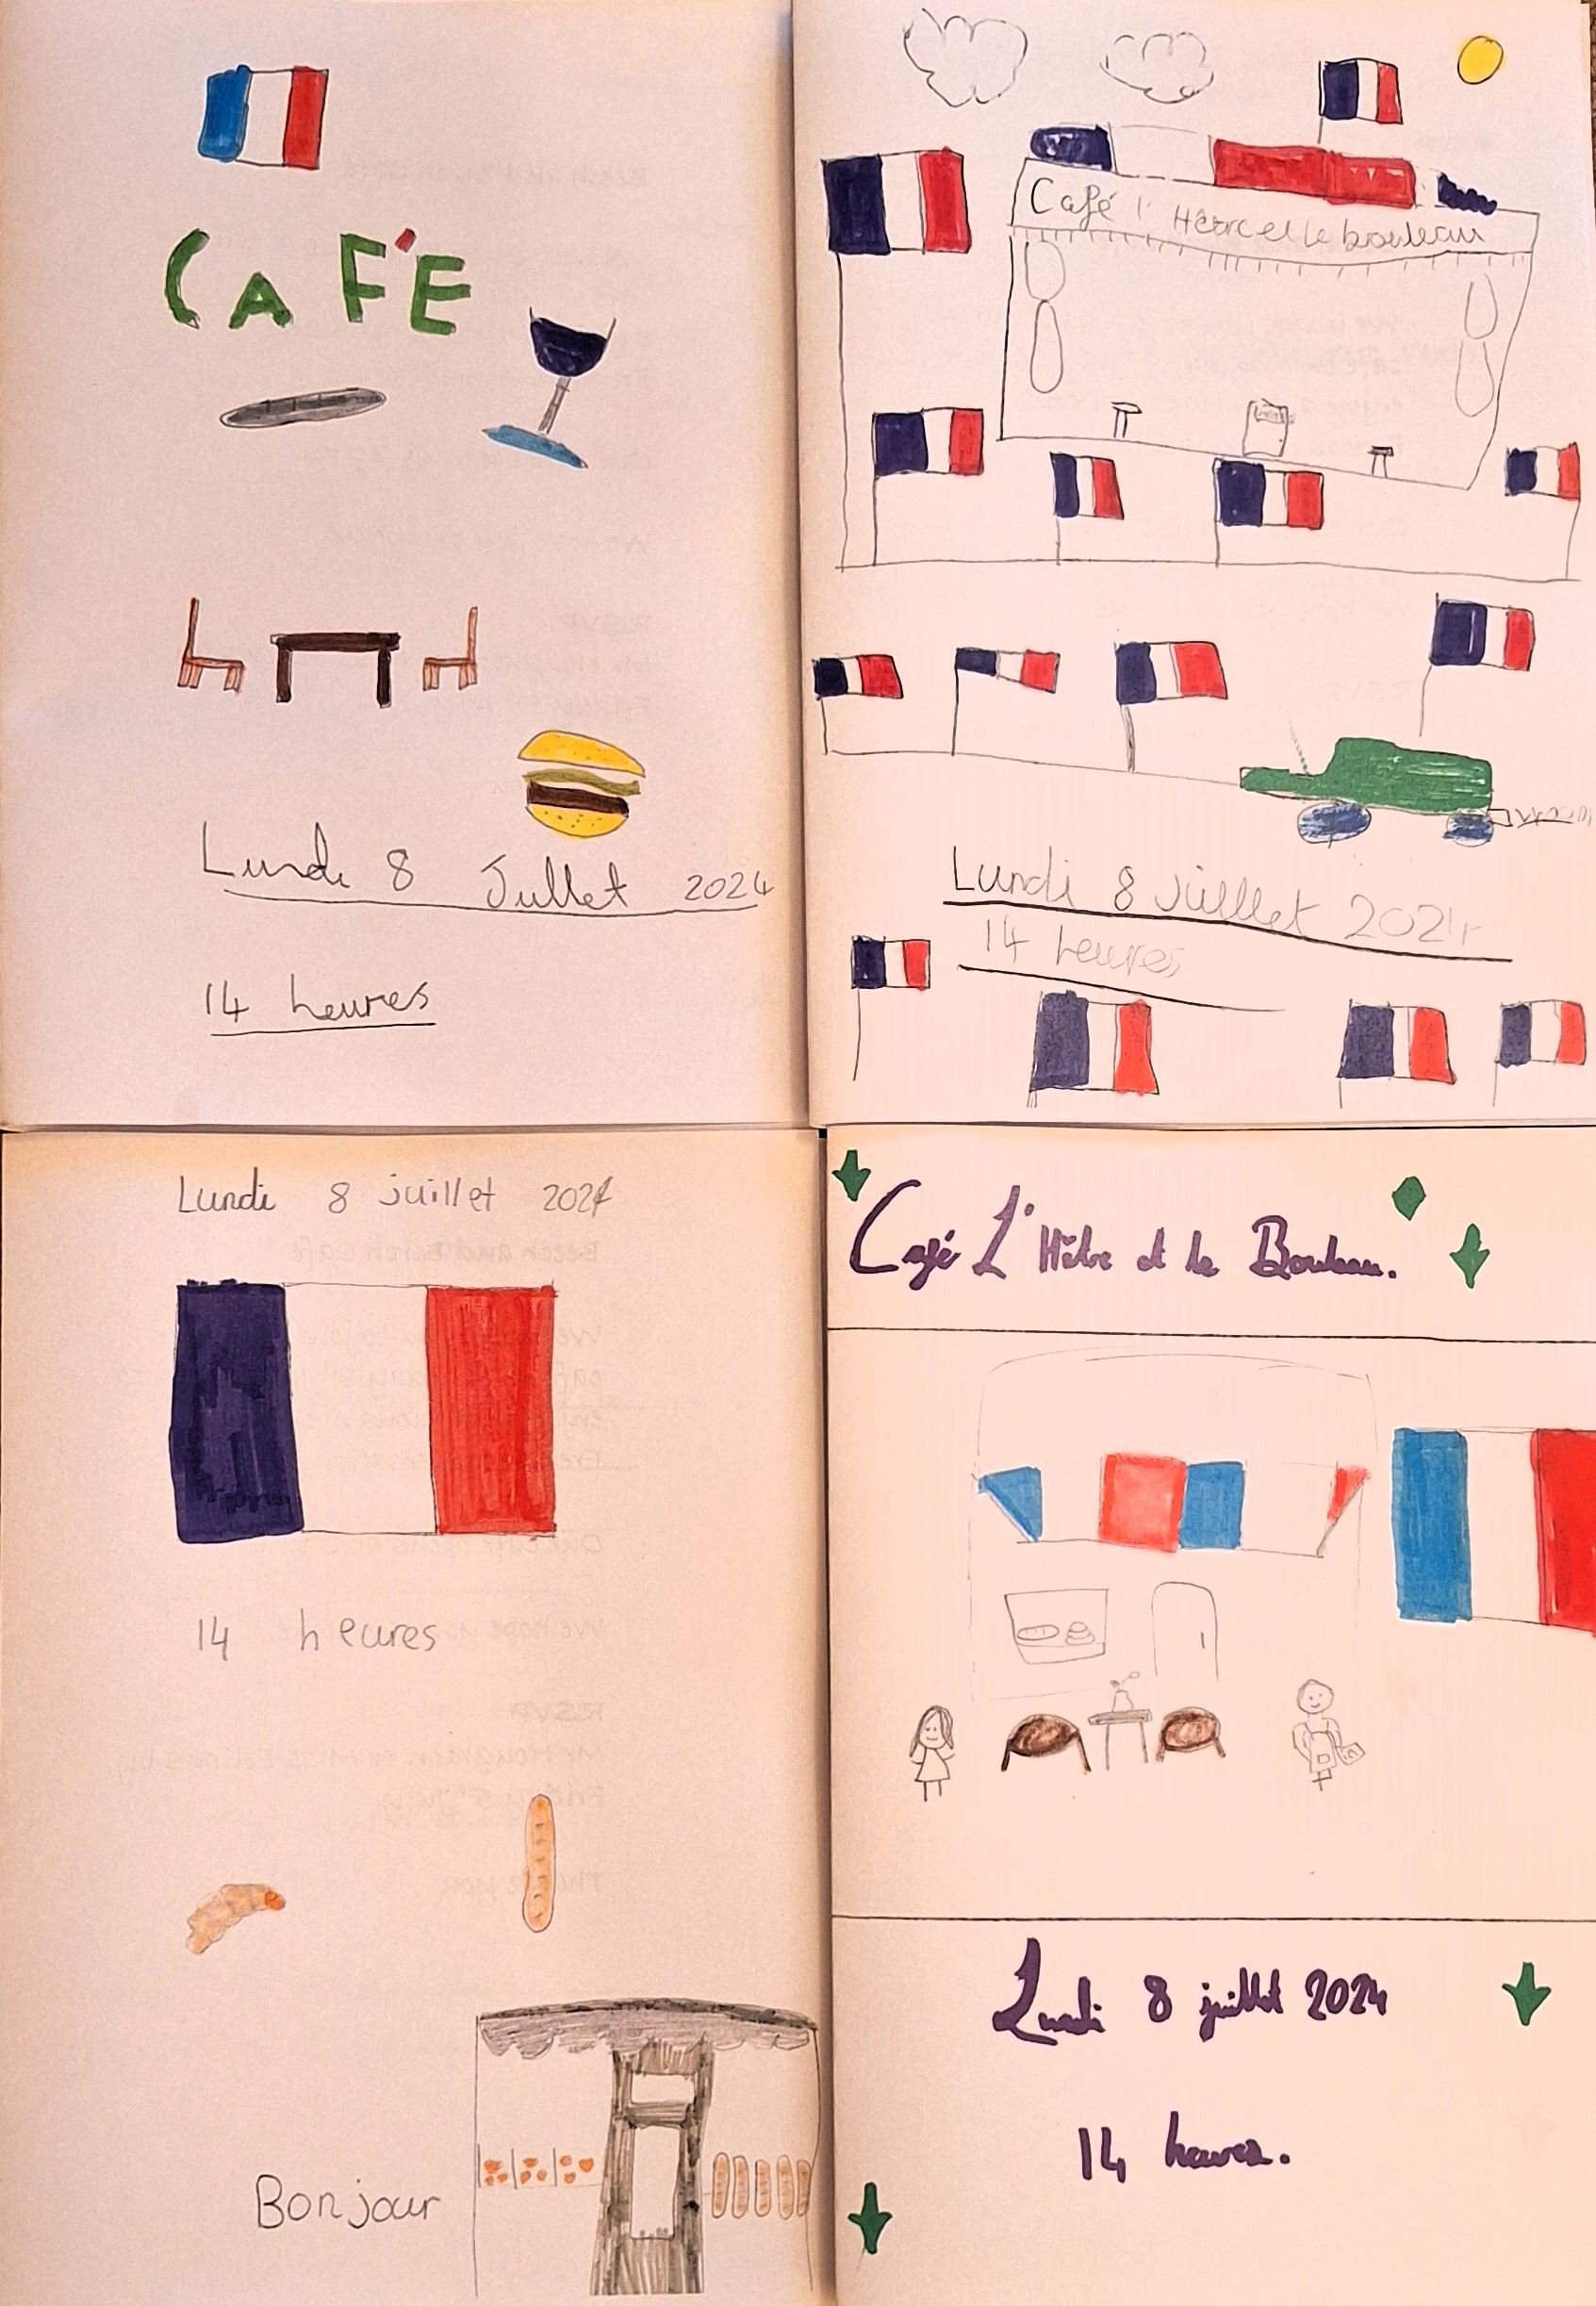 CAFÉ
Lundi 8 Jullet 2024
14 heures
Café l' Hêtre et le bouleau
Lundi 8 juillet 2024
14 heures
Lundi 8 juillet 2024
14 heures
Bonjour
Café L' Hêtre et le Bouleau.
Lundi 8 juillet 2024
14 heures.